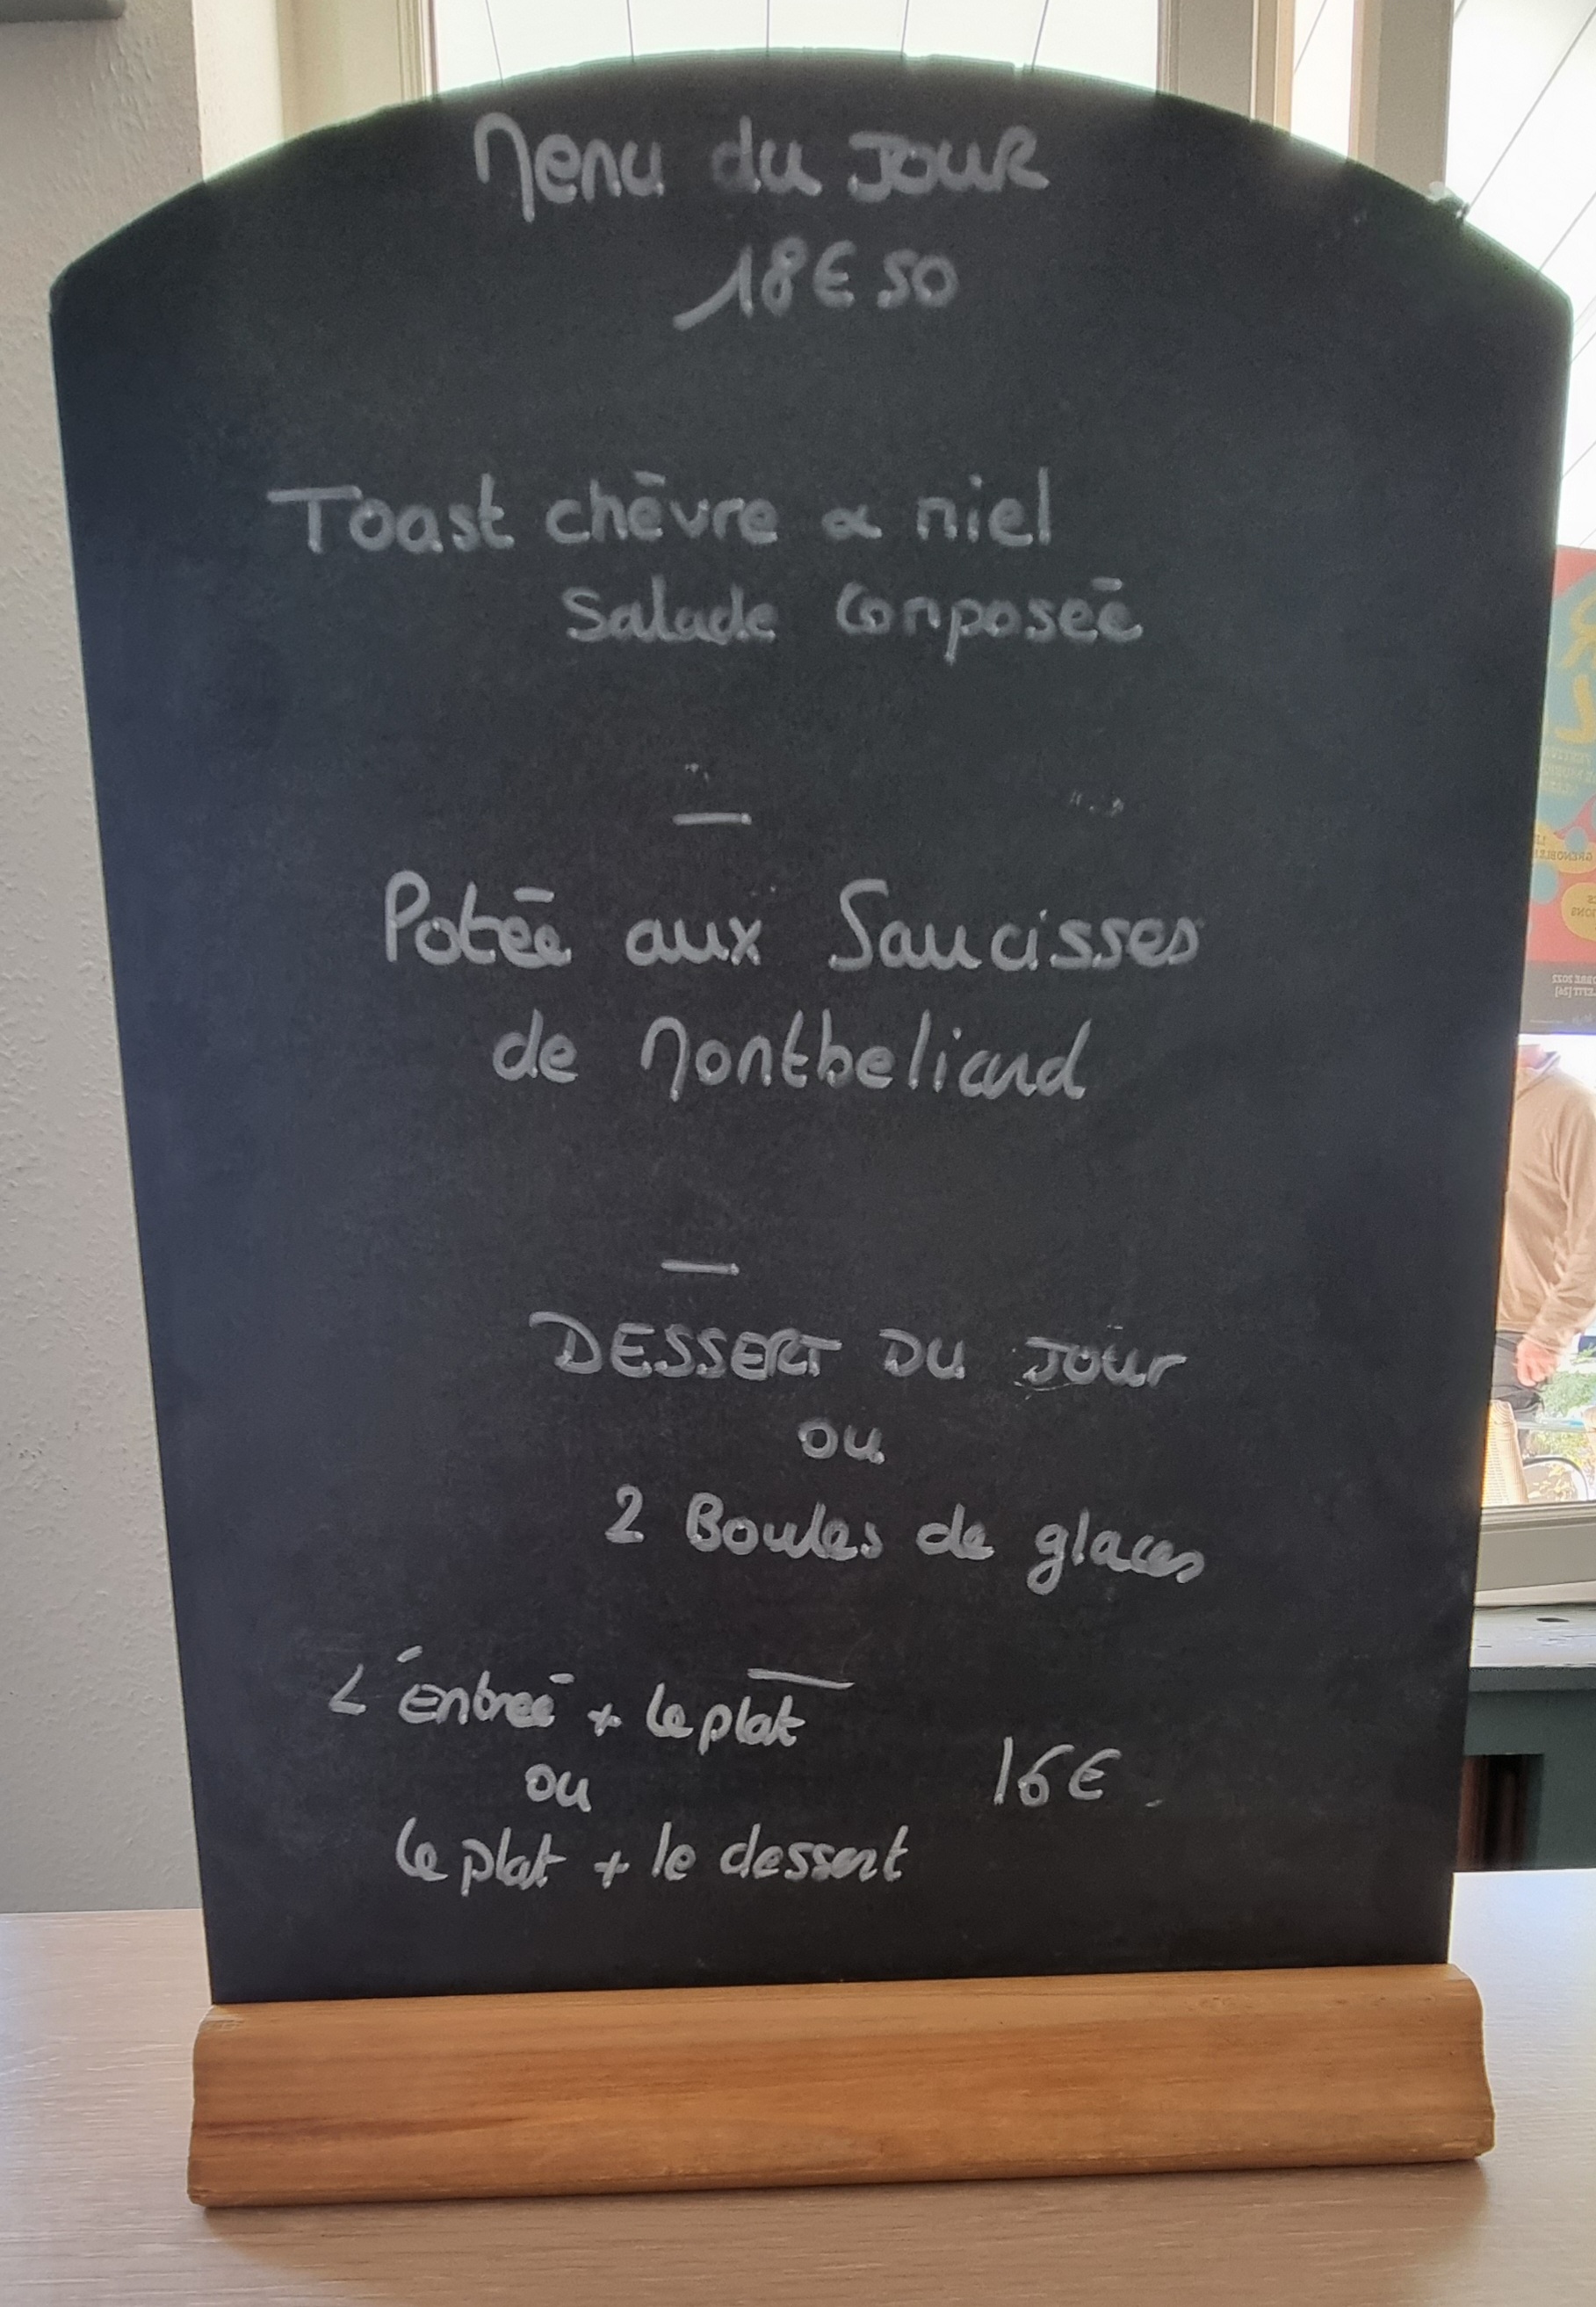 Menu du JOUR
18€50
Toast chèvre & miel
Salade Composée
—
Potée aux Saucisses
de Montbeliard
—
DESSERT DU JOUr
ou
2 Boules de glaces
L'Entrée + Le plat
ou
16€
Le plat + le dessert